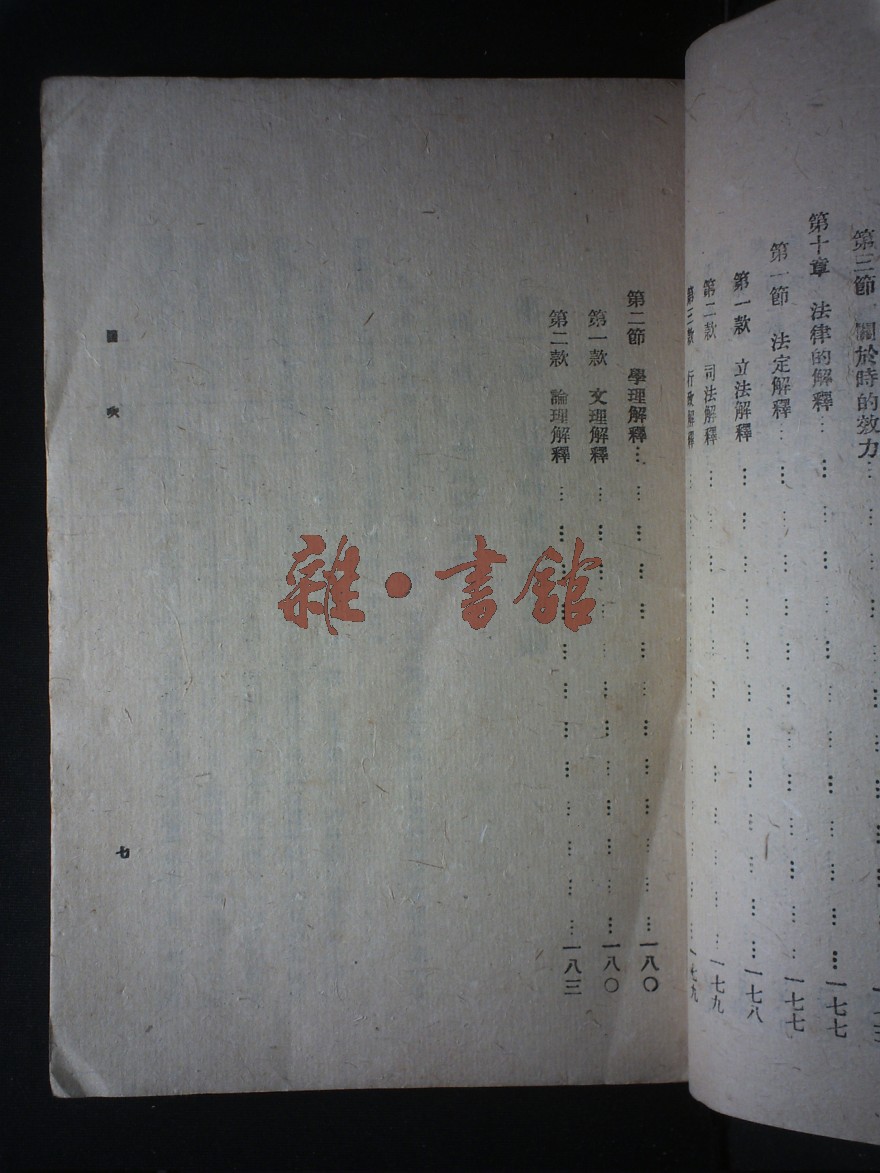 第三節 關於時的效力
第十章 法律的解釋 一七七
第一節 法定解釋 一七七
第一款 立法解釋 一七八
第二款 司法解釋 一七九
第三款 行政解釋 一七九
第二節 學理解釋 一八〇
第一款 文理解釋 一八〇
第二款 論理解釋 一八三
七
雜·書館